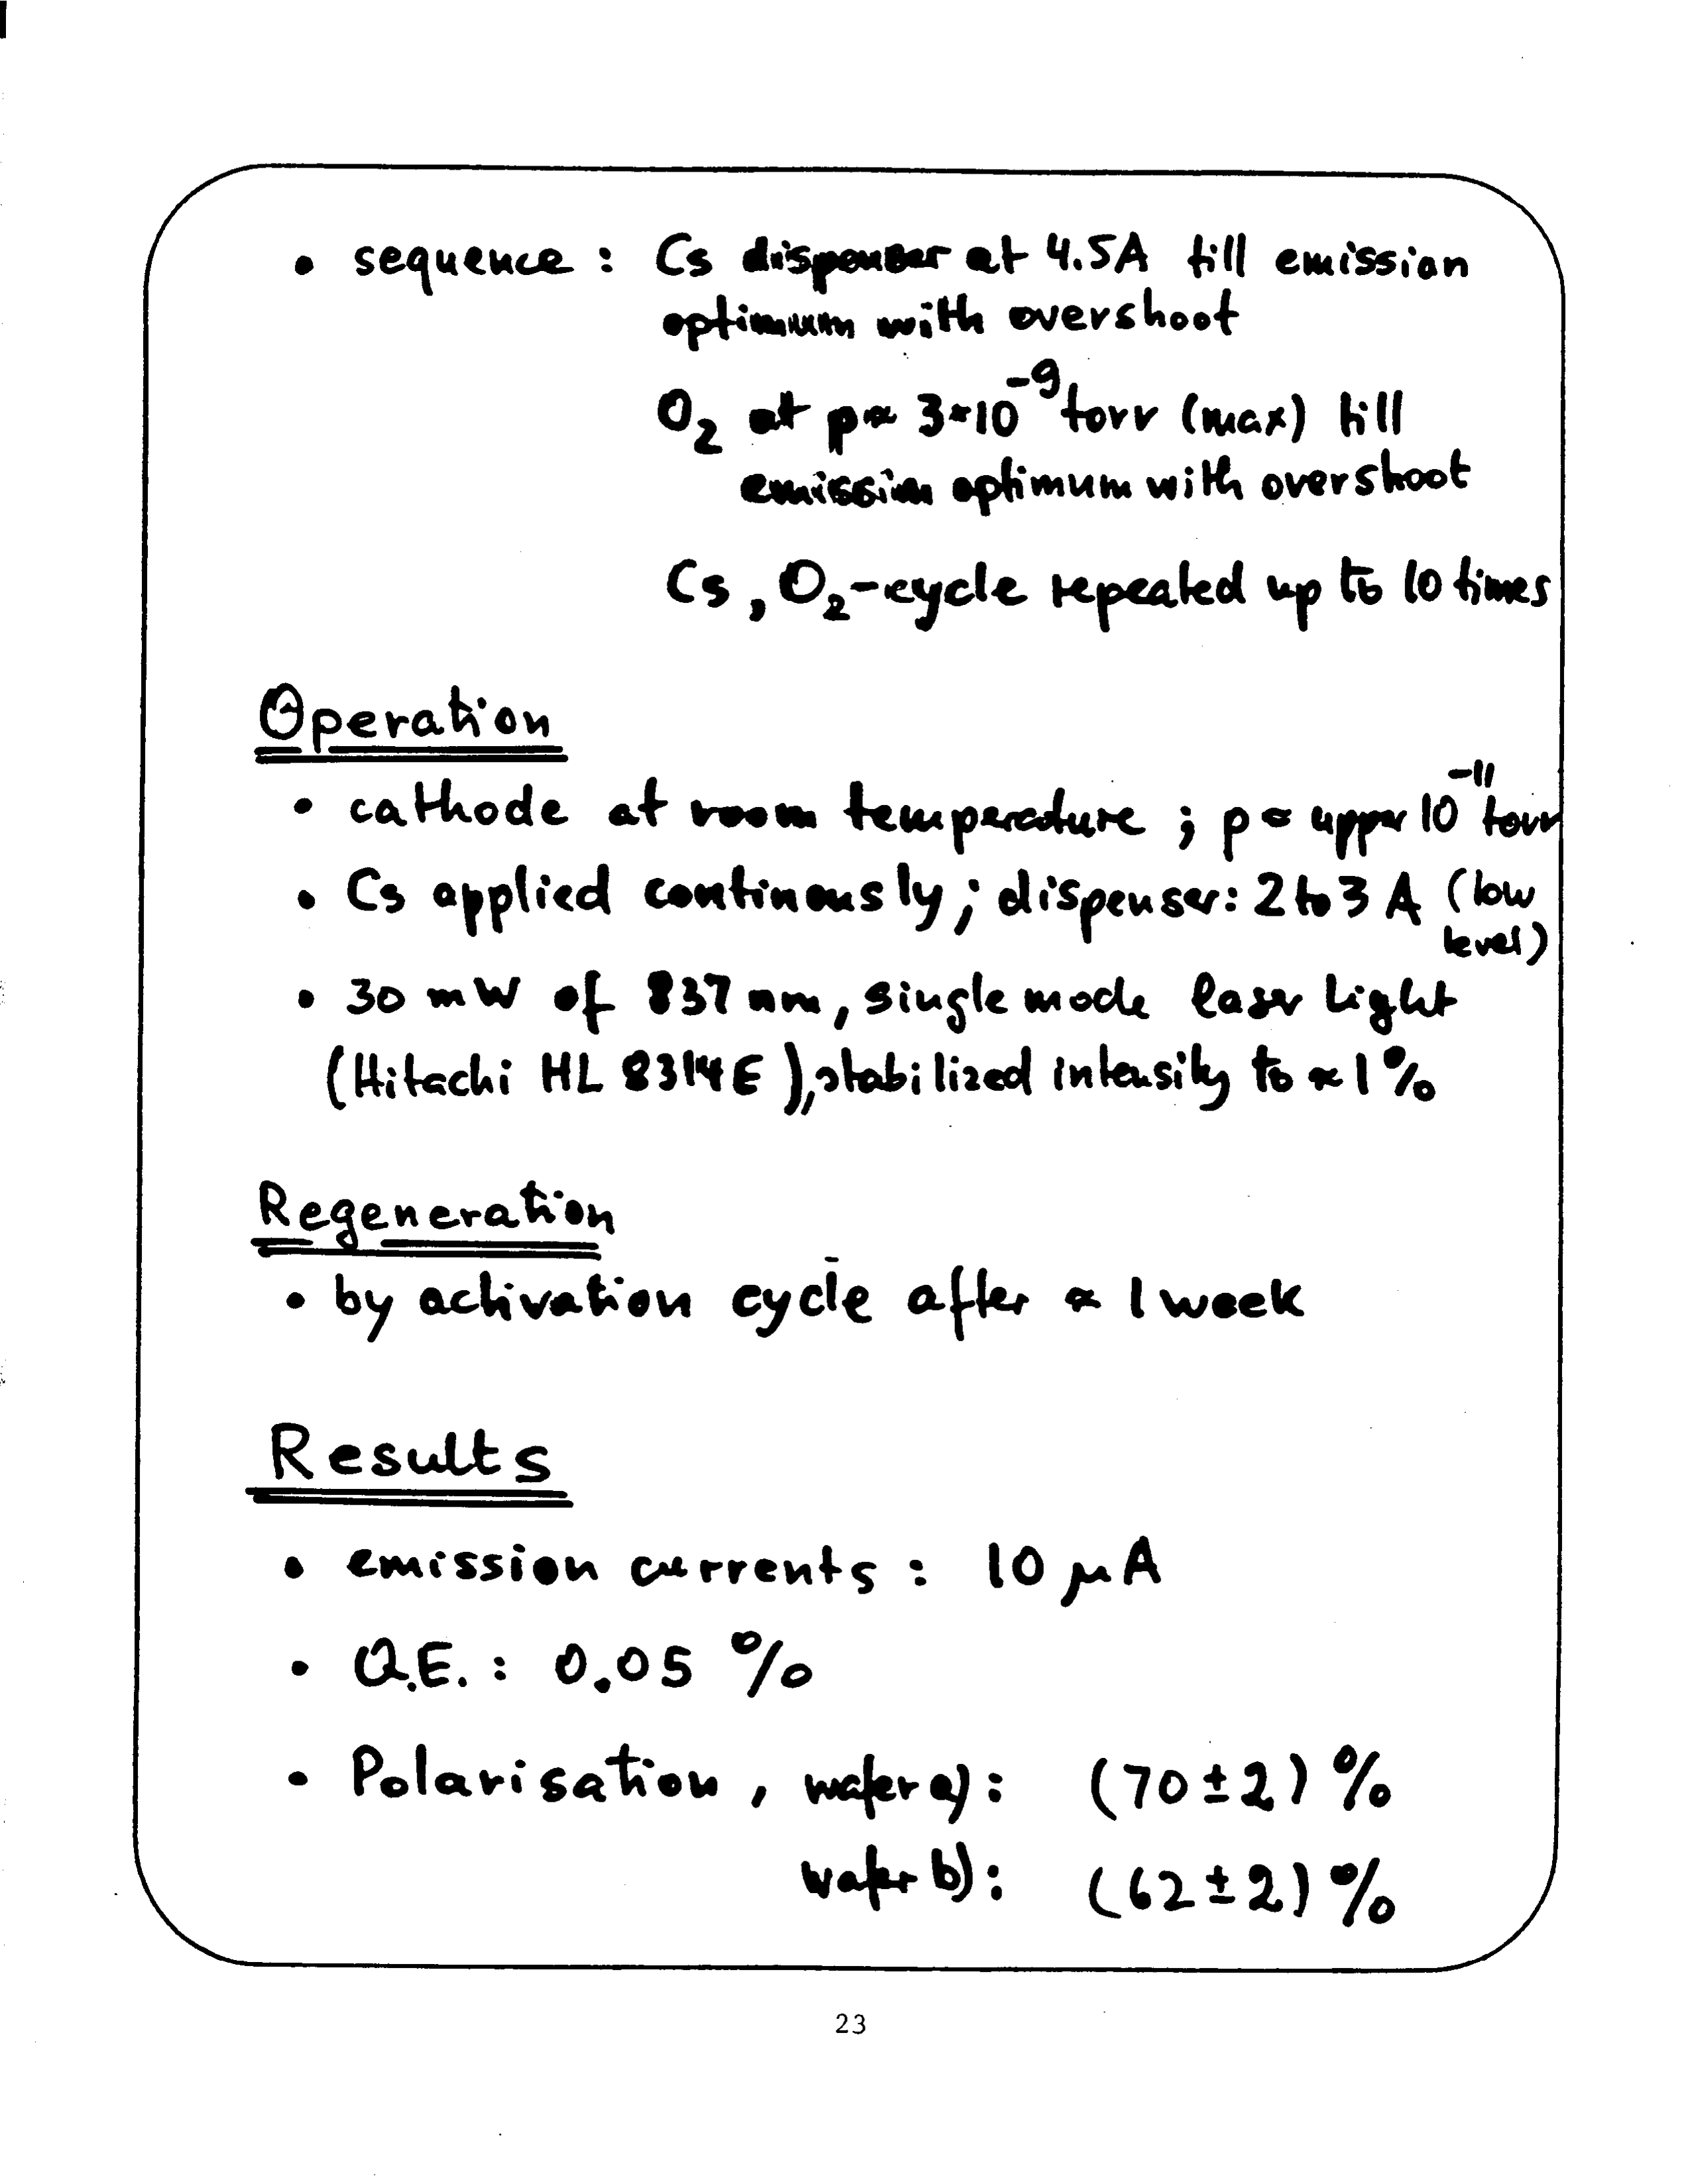 • sequence : Cs dispenser at 4.5A till emission
optimum with overshoot
O₂ at p ≈ 3*10⁻⁹ torr (max) till
emission optimum with overshoot
Cs, O₂-cycle repeated up to 10 times
Operation
• cathode at room temperature ; p ≈ upper 10⁻¹¹ torr
• Cs applied continously ; dispenser: 2 to 3 A (low
level)
• 30 mW of 837 nm, single mode laser light
(Hitachi HL 8314E), stabilized intensity to ≈ 1%
Regeneration
• by activation cycle after ≈ 1 week
Results
• emission currents : 10 μA
• Q.E. : 0.05 %
• Polarisation , wafer a) : (70 ± 2) %
wafer b) : (62 ± 2) %
23